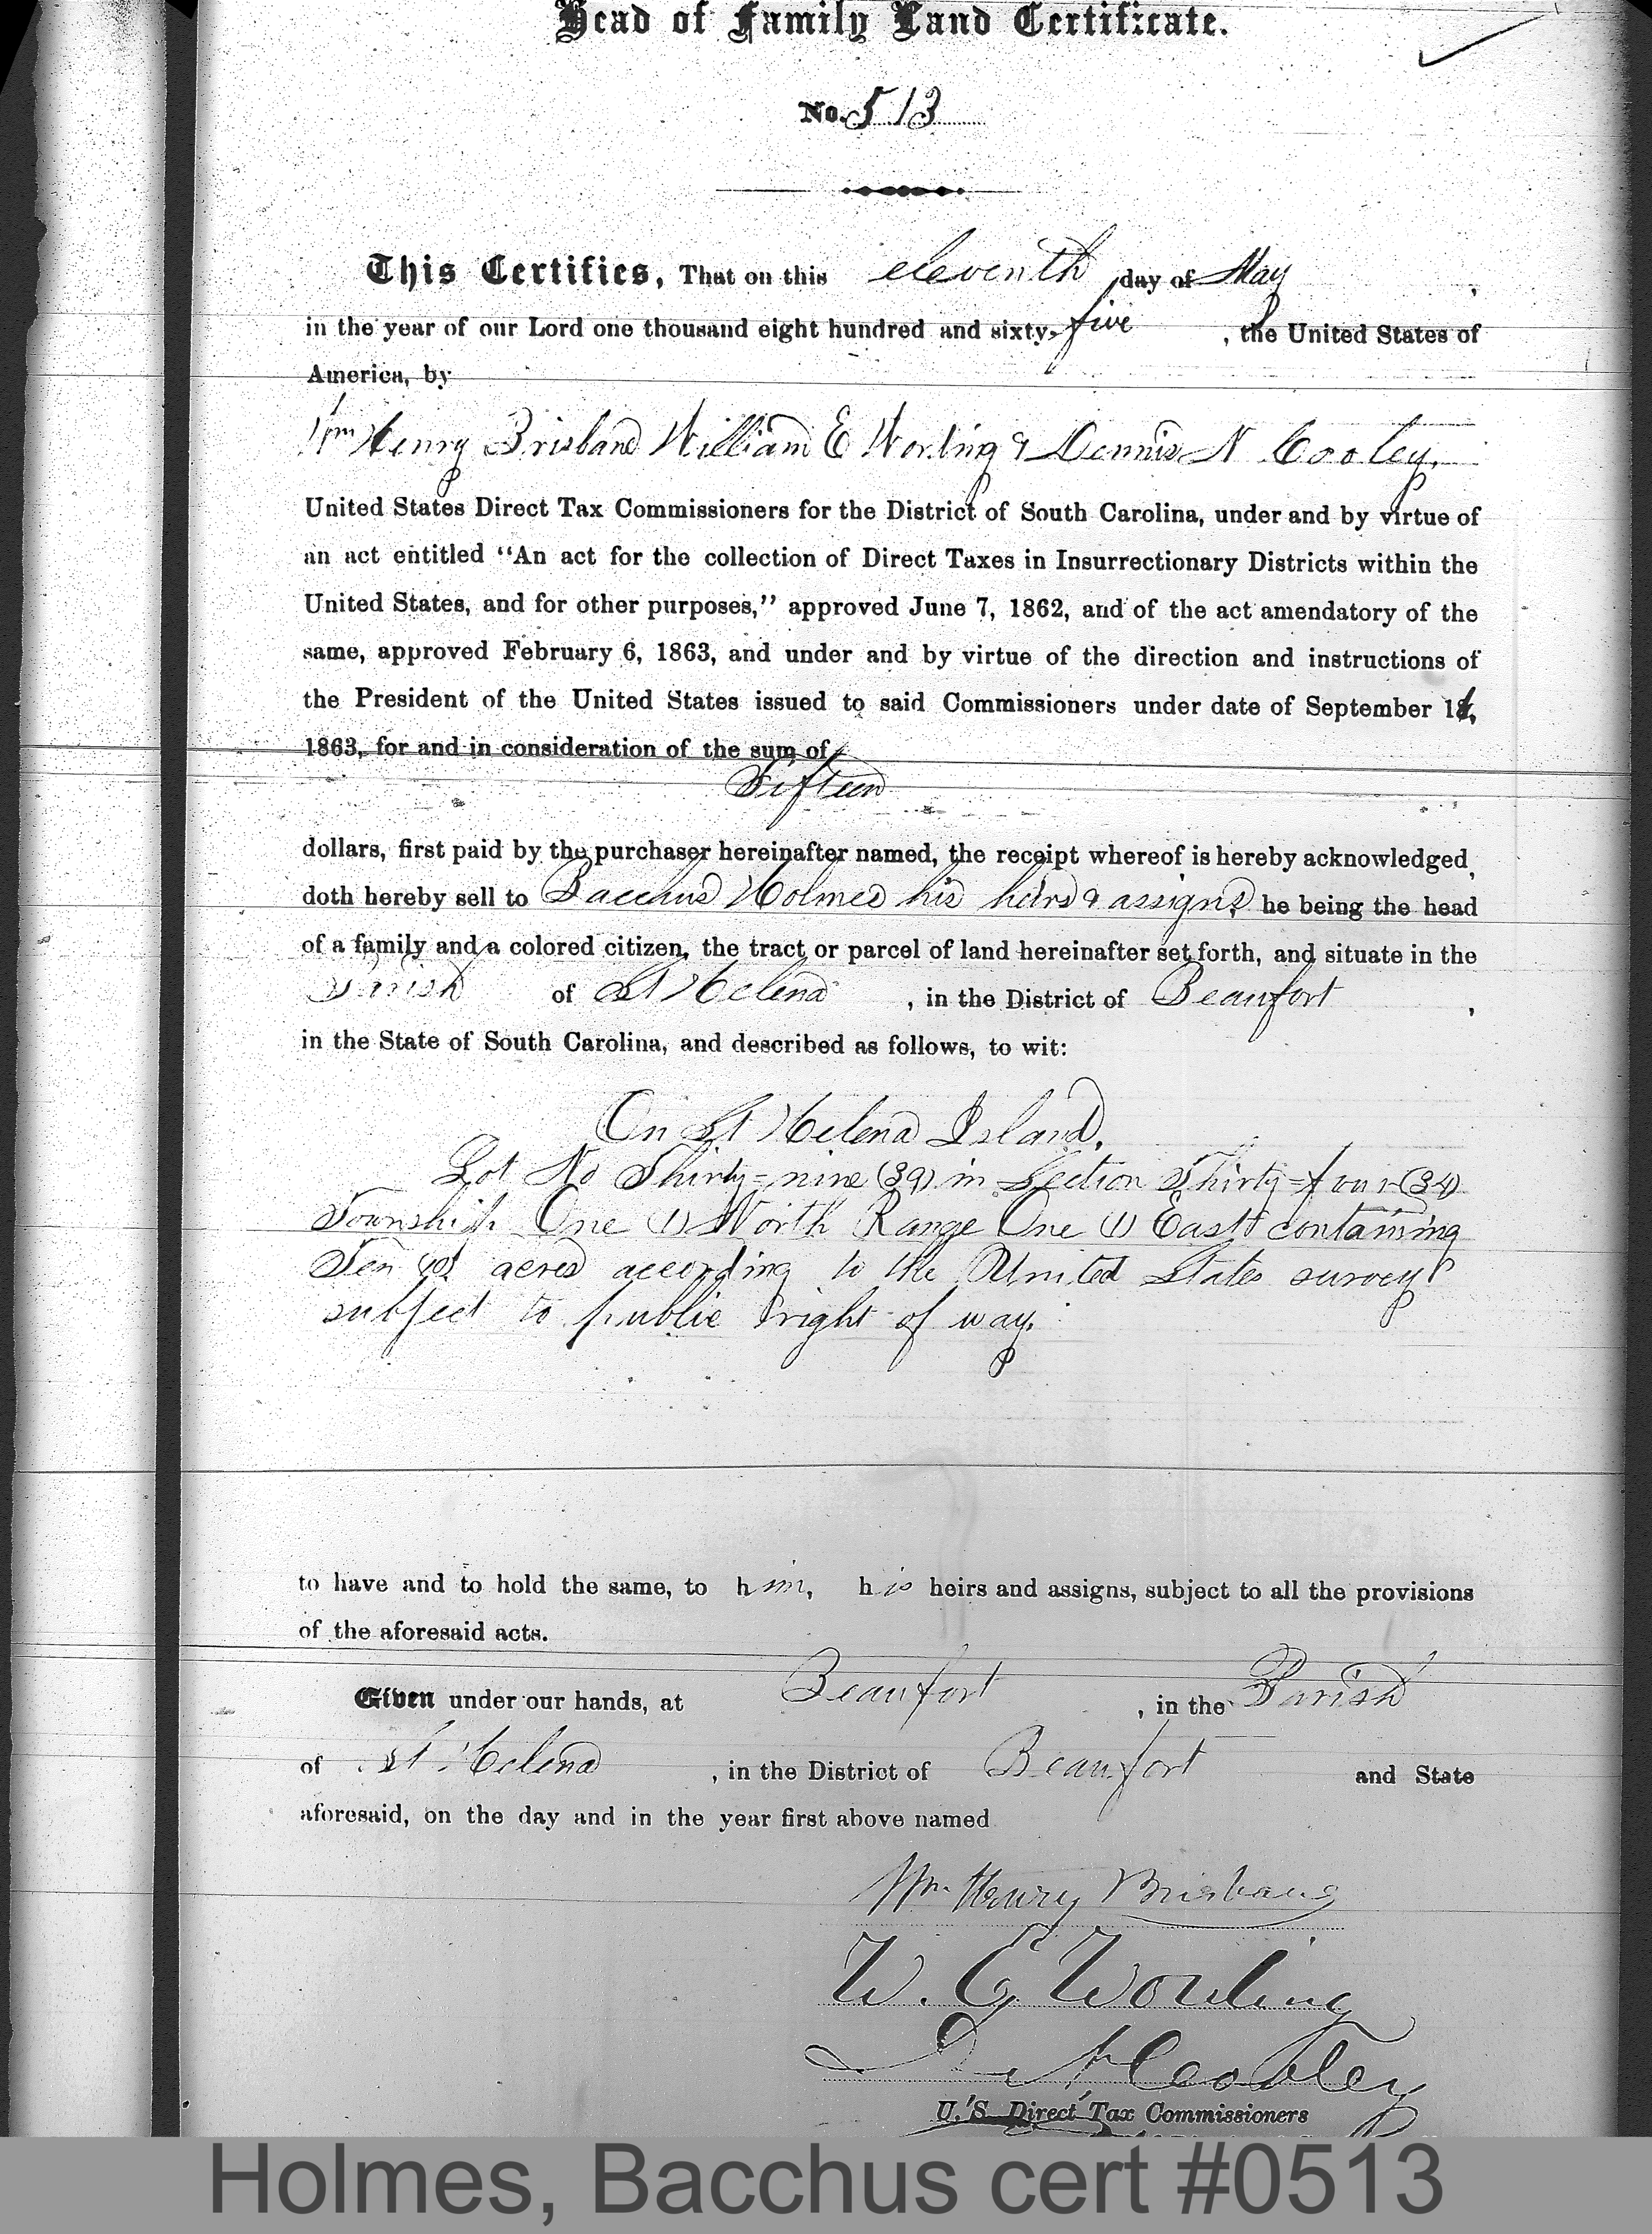 Head of Family Land Certificate.
No. 513
This Certifies, That on this eleventh day of May,
in the year of our Lord one thousand eight hundred and sixty-five, the United States of
America, by
Wm Henry Brisbane William E Wording & Dennis N Cooley.
United States Direct Tax Commissioners for the District of South Carolina, under and by virtue of
an act entitled "An act for the collection of Direct Taxes in Insurrectionary Districts within the
United States, and for other purposes," approved June 7, 1862, and of the act amendatory of the
same, approved February 6, 1863, and under and by virtue of the direction and instructions of
the President of the United States issued to said Commissioners under date of September
1863, for and in consideration of the sum of
Fifteen
dollars, first paid by the purchaser hereinafter named, the receipt whereof is hereby acknowledged,
doth hereby sell to Bacchus Holmes his heirs & assigns, he being the head
of a family and a colored citizen, the tract or parcel of land hereinafter set forth, and situate in the
Parish of St Helena, in the District of Beaufort,
in the State of South Carolina, and described as follows, to wit:
On St Helena Island.
Lot No Thirty=nine (39) in Section Thirty=four (34)
Township One (1) North Range One (1) East containing
Ten (10) acres according to the United States survey
subject to public right of way.
to have and to hold the same, to him, his heirs and assigns, subject to all the provisions
of the aforesaid acts.
Given under our hands, at Beaufort, in the Parish
of St Helena, in the District of Beaufort and State
aforesaid, on the day and in the year first above named
Wm. Henry Brisbane
W. E. Wording
D N Cooley
U. S. Direct Tax Commissioners
Holmes, Bacchus cert #0513